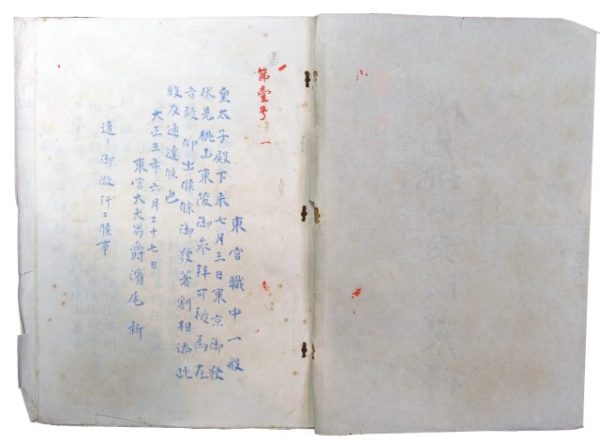 第壹号 一
東宮職中一般
皇太子殿下来七月三日東京御発
伏見桃山東陵御参拝可被為在
旨被仰出候条御発著割相添此
段及通達候也
大正三年六月二十七日
東宮大夫男爵濱尾新
追テ御微行ニ候事